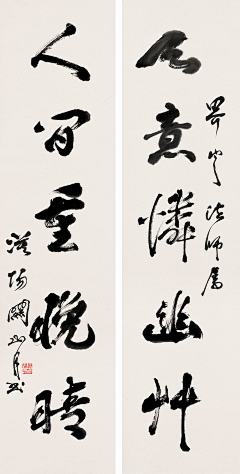 天意憐幽艸
畀之法師屬
人間重晚晴
漢陽關山月書